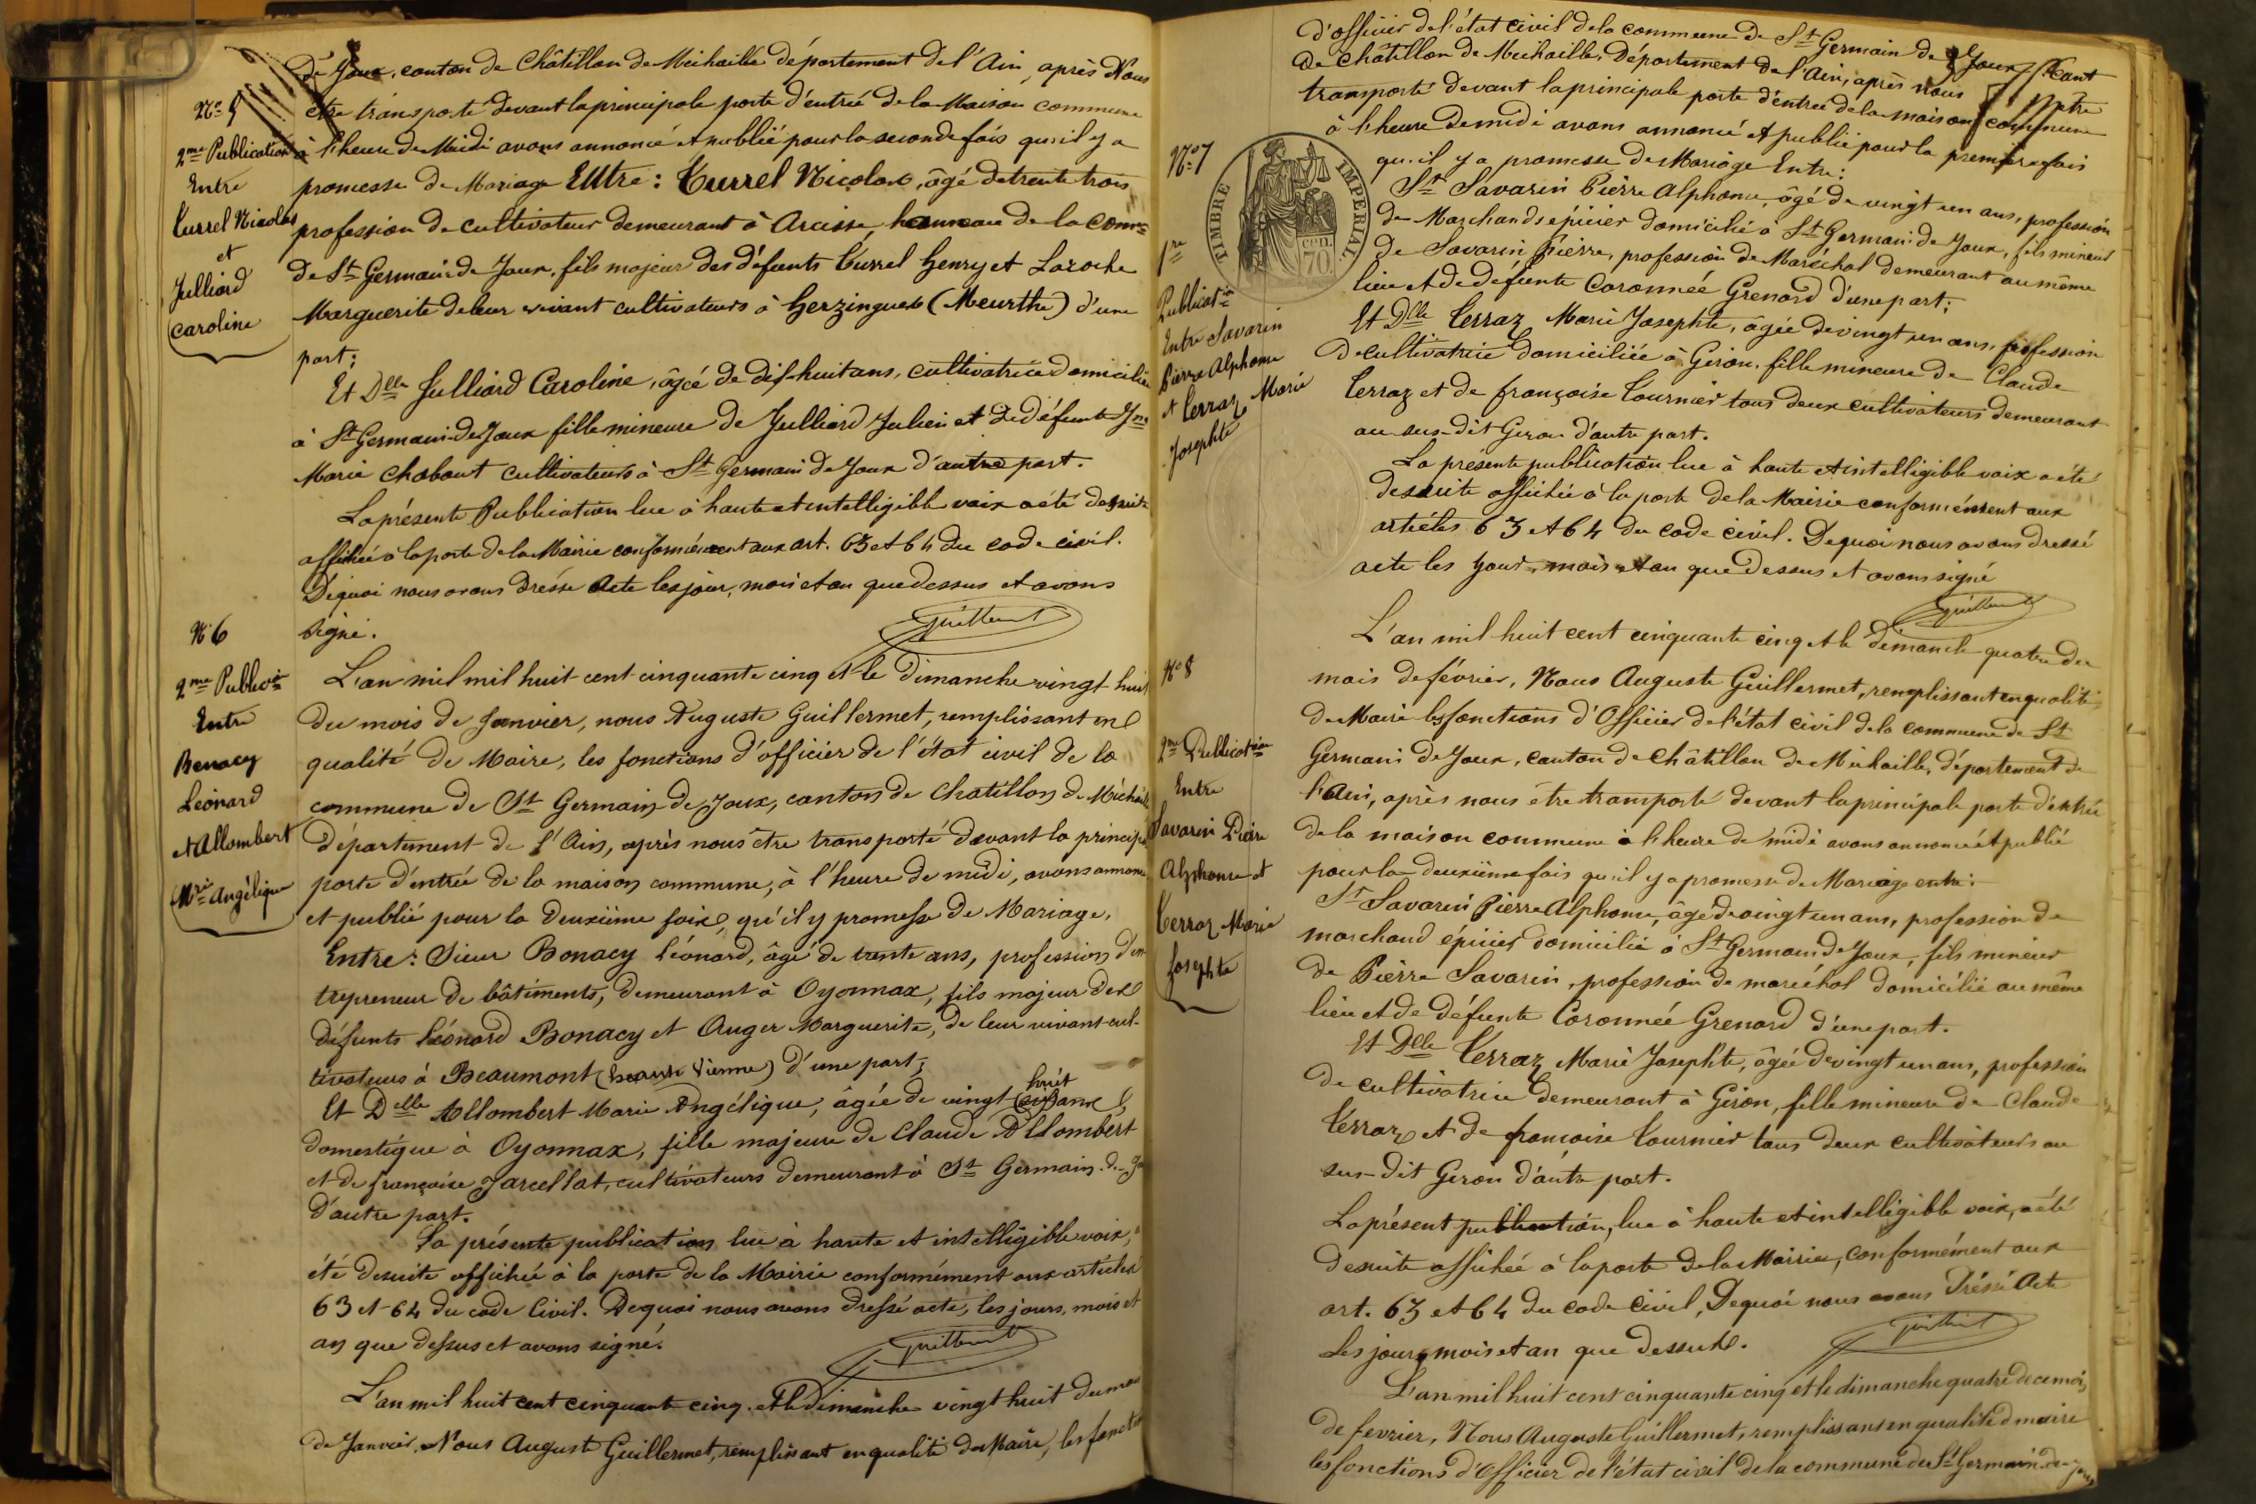 de Joux, canton de Châtillon de Michaille département de l'Ain, après Nous
être transporté devant la principale porte d'entrée de la Maison commune
à l'heure de Midi avons annoncé et publié pour la seconde fois qu'il y a
promesse de Mariage Entre : Currel Nicolas, âgé de trente trois
profession de cultivateur demeurant à Arcisse, hameau de la Comne
de St Germain de Joux, fils majeur des défunts Currel Henry et Laroche
Marguerite de leur vivant cultivateurs à herzingues (Meurthe) d'une
part ;
Et Dlle Julliard Caroline, âgée de dix-huit ans, cultivatrice domiciliée
à St Germain de Joux fille mineure de Julliard Julien et de défunte
Marie Chabaut cultivateurs à St Germain de Joux d'autre part.
La présente Publication lue à haute et intelligible voix a été de suite
affichée à la porte de la Mairie conformément aux art. 63 et 64 du code civil.
De quoi nous avons dressé acte les jour, mois et an que dessus et avons
signé.
Guillermet
L'an mil mil huit cent cinquante cinq et le dimanche vingt huit
du mois de Janvier, nous Auguste Guillermet, remplissant en
qualité de Maire, les fonctions d'officier de l'état civil de la
commune de St Germain de Joux, canton de Chatillon de Michaille
département de l'Ain, après nous être transporté devant la principale
porte d'entrée de la maison commune, à l'heure de midi, avons annoncé
et publié pour la deuxième fois, qu'il y promesse de Mariage,
Entre : Sieur Bonacy Léonard, âgé de trente ans, profession d'en
trepreneur de bâtiments, demeurant à Oyonnax, fils majeur des
défunts Léonard Bonacy et Auger Marguerite, de leur vivant cul-
tivateurs à Beaumont (haute Vienne) d'une part ;
huit
Et Delle Allombert Marie Angélique, âgée de vingt ans,
domestique à Oyonnax, fille majeure de Claude Allombert
et de françoise Jarcellat, cultivateurs demeurant à St Germain de
d'autre part.
La présente publication lue à haute et intelligible voix, a
été de suite affichée à la porte de la Mairie conformément aux articles
63 et 64 du code Civil. De quoi nous avons dressé acte, les jours, mois et
an que dessus et avons signé.
Guillermet
L'an mil huit cent cinquante cinq et le Dimanche vingt huit du mois
de Janvier, Nous Auguste Guillermet, remplissant en qualité de Maire, les fonctions
No 5
2me Publication
Entre
Currel Nicolas
et
Julliard
Caroline
No 6
2me Publicon
Entre
Bonacy
Léonard
et Allombert
Mrie Angélique
d'officier de l'état civil de la commune de St Germain de Joux, Cant
de Châtillon de Michaille, Département de l'Ain, après nous être
transporté devant la principale porte d'entrée de la maison commune
à l'heure de midi avons annoncé et publié pour la première fois
qu'il y a promesse de Mariage Entre :
Sr Savarin Pierre Alphonse, âgé de vingt un ans, profession
de Marchand épicier domicilié à St Germain de Joux, fils mineur
de Savarin Pierre, profession de Maréchal demeurant au même
lieu et de défunte Coronnée Grenard d'une part ;
Et Dlle Terraz Marie Josephte, âgée de vingt un ans, profession
de cultivatrice domiciliée à Giron, fille mineure de Claude
Terraz et de françoise Tournier tous deux cultivateurs demeurant
au sus-dit Giron d'autre part.
La présente publication lue à haute et intelligible voix a été
de suite affichée à la porte de la Mairie conformément aux
articles 63 et 64 du code civil. De quoi nous avons dressé
acte les jour, mois et an que dessus et avons signé
Guillermet
L'an mil huit cent cinquante cinq et le dimanche quatre du
mois de février, Nous Auguste Guillermet, remplissant en qualité
de Maire les fonctions d'Officier de l'état civil de la commune de St
Germain de Joux, canton de Châtillon de Michaille, département de
l'Ain, après nous être transporté devant la principale porte d'entrée
de la maison commune à l'heure de midi avons annoncé et publié
pour la deuxième fois qu'il y a promesse de Mariage entre :
Sr Savarin Pierre Alphonse, âgé de vingt un ans, profession de
marchand épicier domicilié à St Germain de Joux, fils mineur
de Pierre Savarin, profession de maréchal domicilié au même
lieu et de défunte Coronnée Grenard d'une part.
Et Dlle Terraz Marie Josephte, âgée de vingt un ans, profession
de cultivatrice demeurant à Giron, fille mineure de Claude
Terraz et de françoise Tournier tous deux cultivateurs au
sus-dit Giron d'autre part.
La présent publication, lue à haute et intelligible voix, a été
de suite affichée à la porte de la Mairie, conformément aux
art. 63 et 64 du code Civil, De quoi nous avons Dressé Acte
Les jour, mois et an que dessus.
Guillermet
L'an mil huit cent cinquante cinq et le dimanche quatre de ce mois
de fevrier, Nous Auguste Guillermet, remplissant en qualité d maire
les fonctions d'Officier de l'état civil de la commune de St Germain de Joux
No 7
TIMBRE IMPERIAL
70
1re
Publication
Entre Savarin
Pierre Alphonse
et Terraz Marie
Josephte
No 8
2me Publication
Entre
Savarin Pierre
Alphonse et
Terraz Marie
Josephte